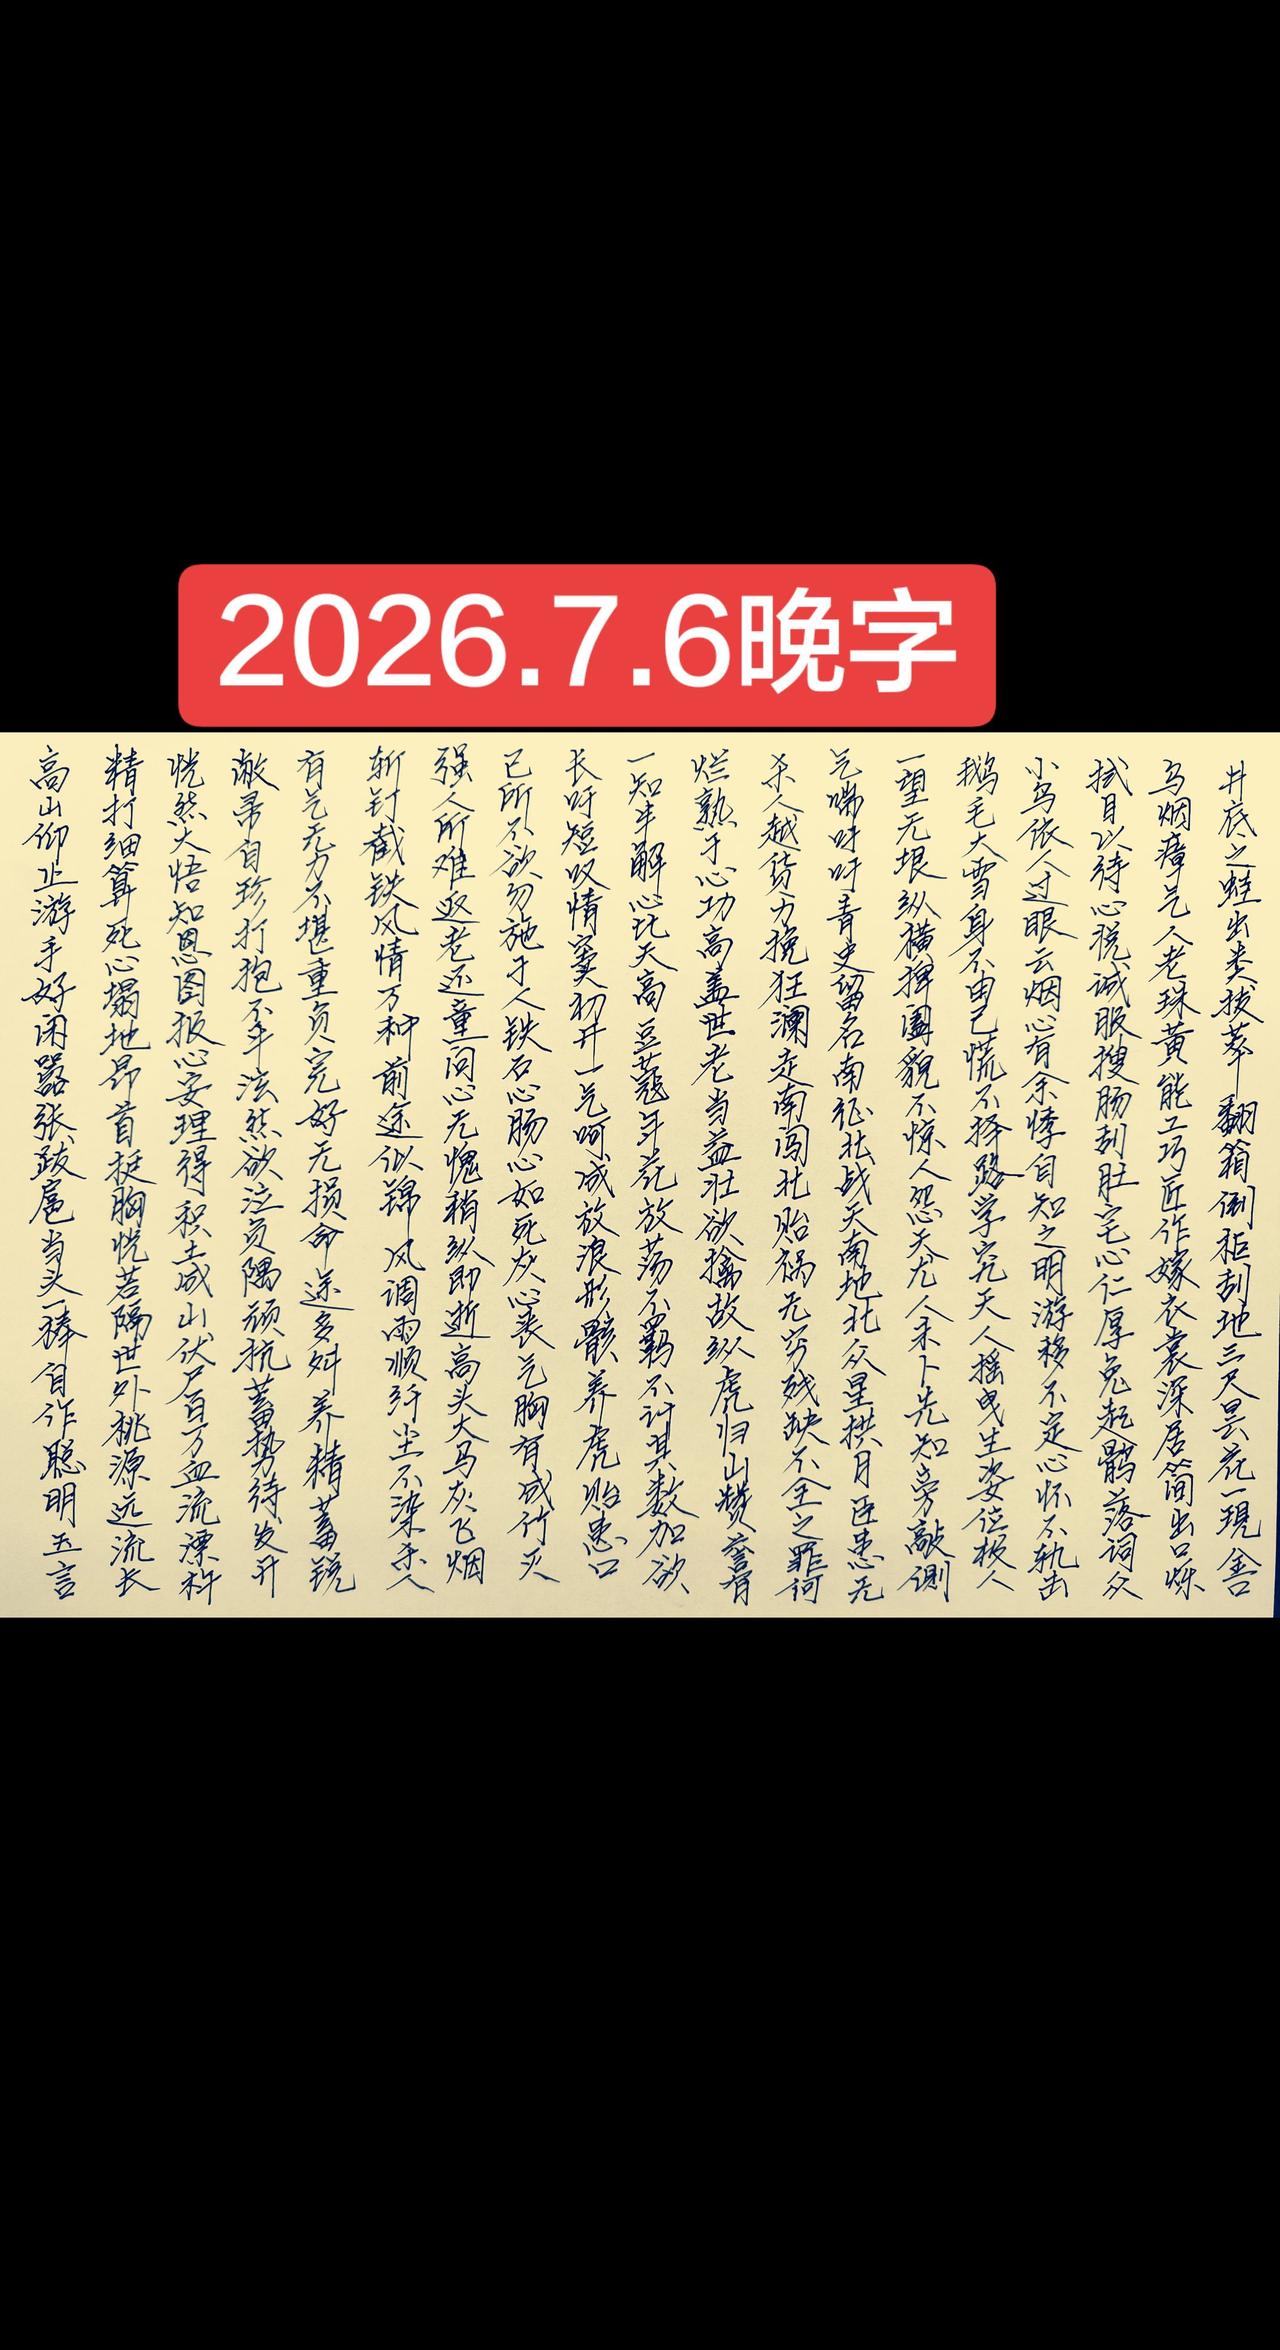 2026.7.6晚字
井底之蛙出类拔萃翻箱倒柜刮地三尺昙花一現舍
乌烟瘴气人老珠黄能工巧匠作嫁衣裳深居简出口烁
拭目以待心悦诚服搜肠刮肚宅心仁厚兔起鹘落词众
小鸟依人过眼云烟心有余悸自知之明游移不定心怀不轨击
鹅毛大雪身不由己慌不择路学究天人摇曳生姿位极人
一望无垠纵横捭阖貌不惊人怨天尤人未卜先知旁敲侧
气喘吁吁青史留名南征北战天南地北众星拱月臣患无
杀人越货力挽狂澜走南闯北贻祸无穷残缺不全之罪何
烂熟于心功高盖世老当益壮欲擒故纵虎归山赞誉有
一知半解心比天高豆蔻年花放荡不羁不计其数加欲
长吁短叹情窦初开一气呵成放浪形骸养虎贻患口
己所不欲勿施于人铁石心肠心如死灰心丧气胸有成竹灭
强人所难返老还童问心无愧稍纵即逝高头大马灰飞烟
斩钉截铁风情万种前途似锦风调雨顺纤尘不染杀人
有气无力不堪重负完好无损命途多舛养精蓄锐
敝帚自珍打抱不平泫然欲泣负隅顽抗蓄势待发升
恍然大悟知恩图报心安理得积土成山伏尸百万血流漂杵
精打细算死心塌地昂首挺胸恍若隔世外桃源远流长
高山仰止游手好闲嚣张跋扈当头一棒自作聪明玉言